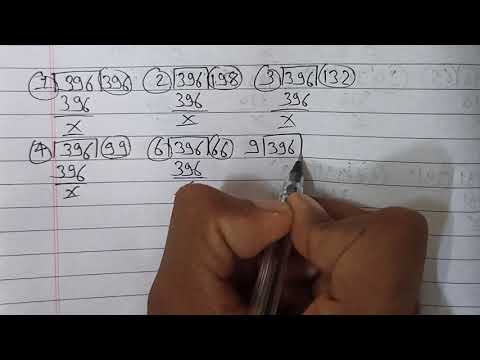 1 396 396 2 396 198 3 396 132
396 396 396
x x x
4 396 99 6 396 66 9 396
396 396
x